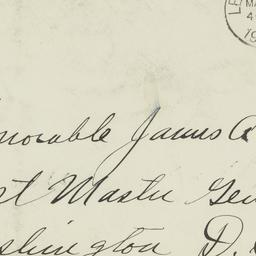 MA
4
19
norable James A
st Master Gen
shington D.